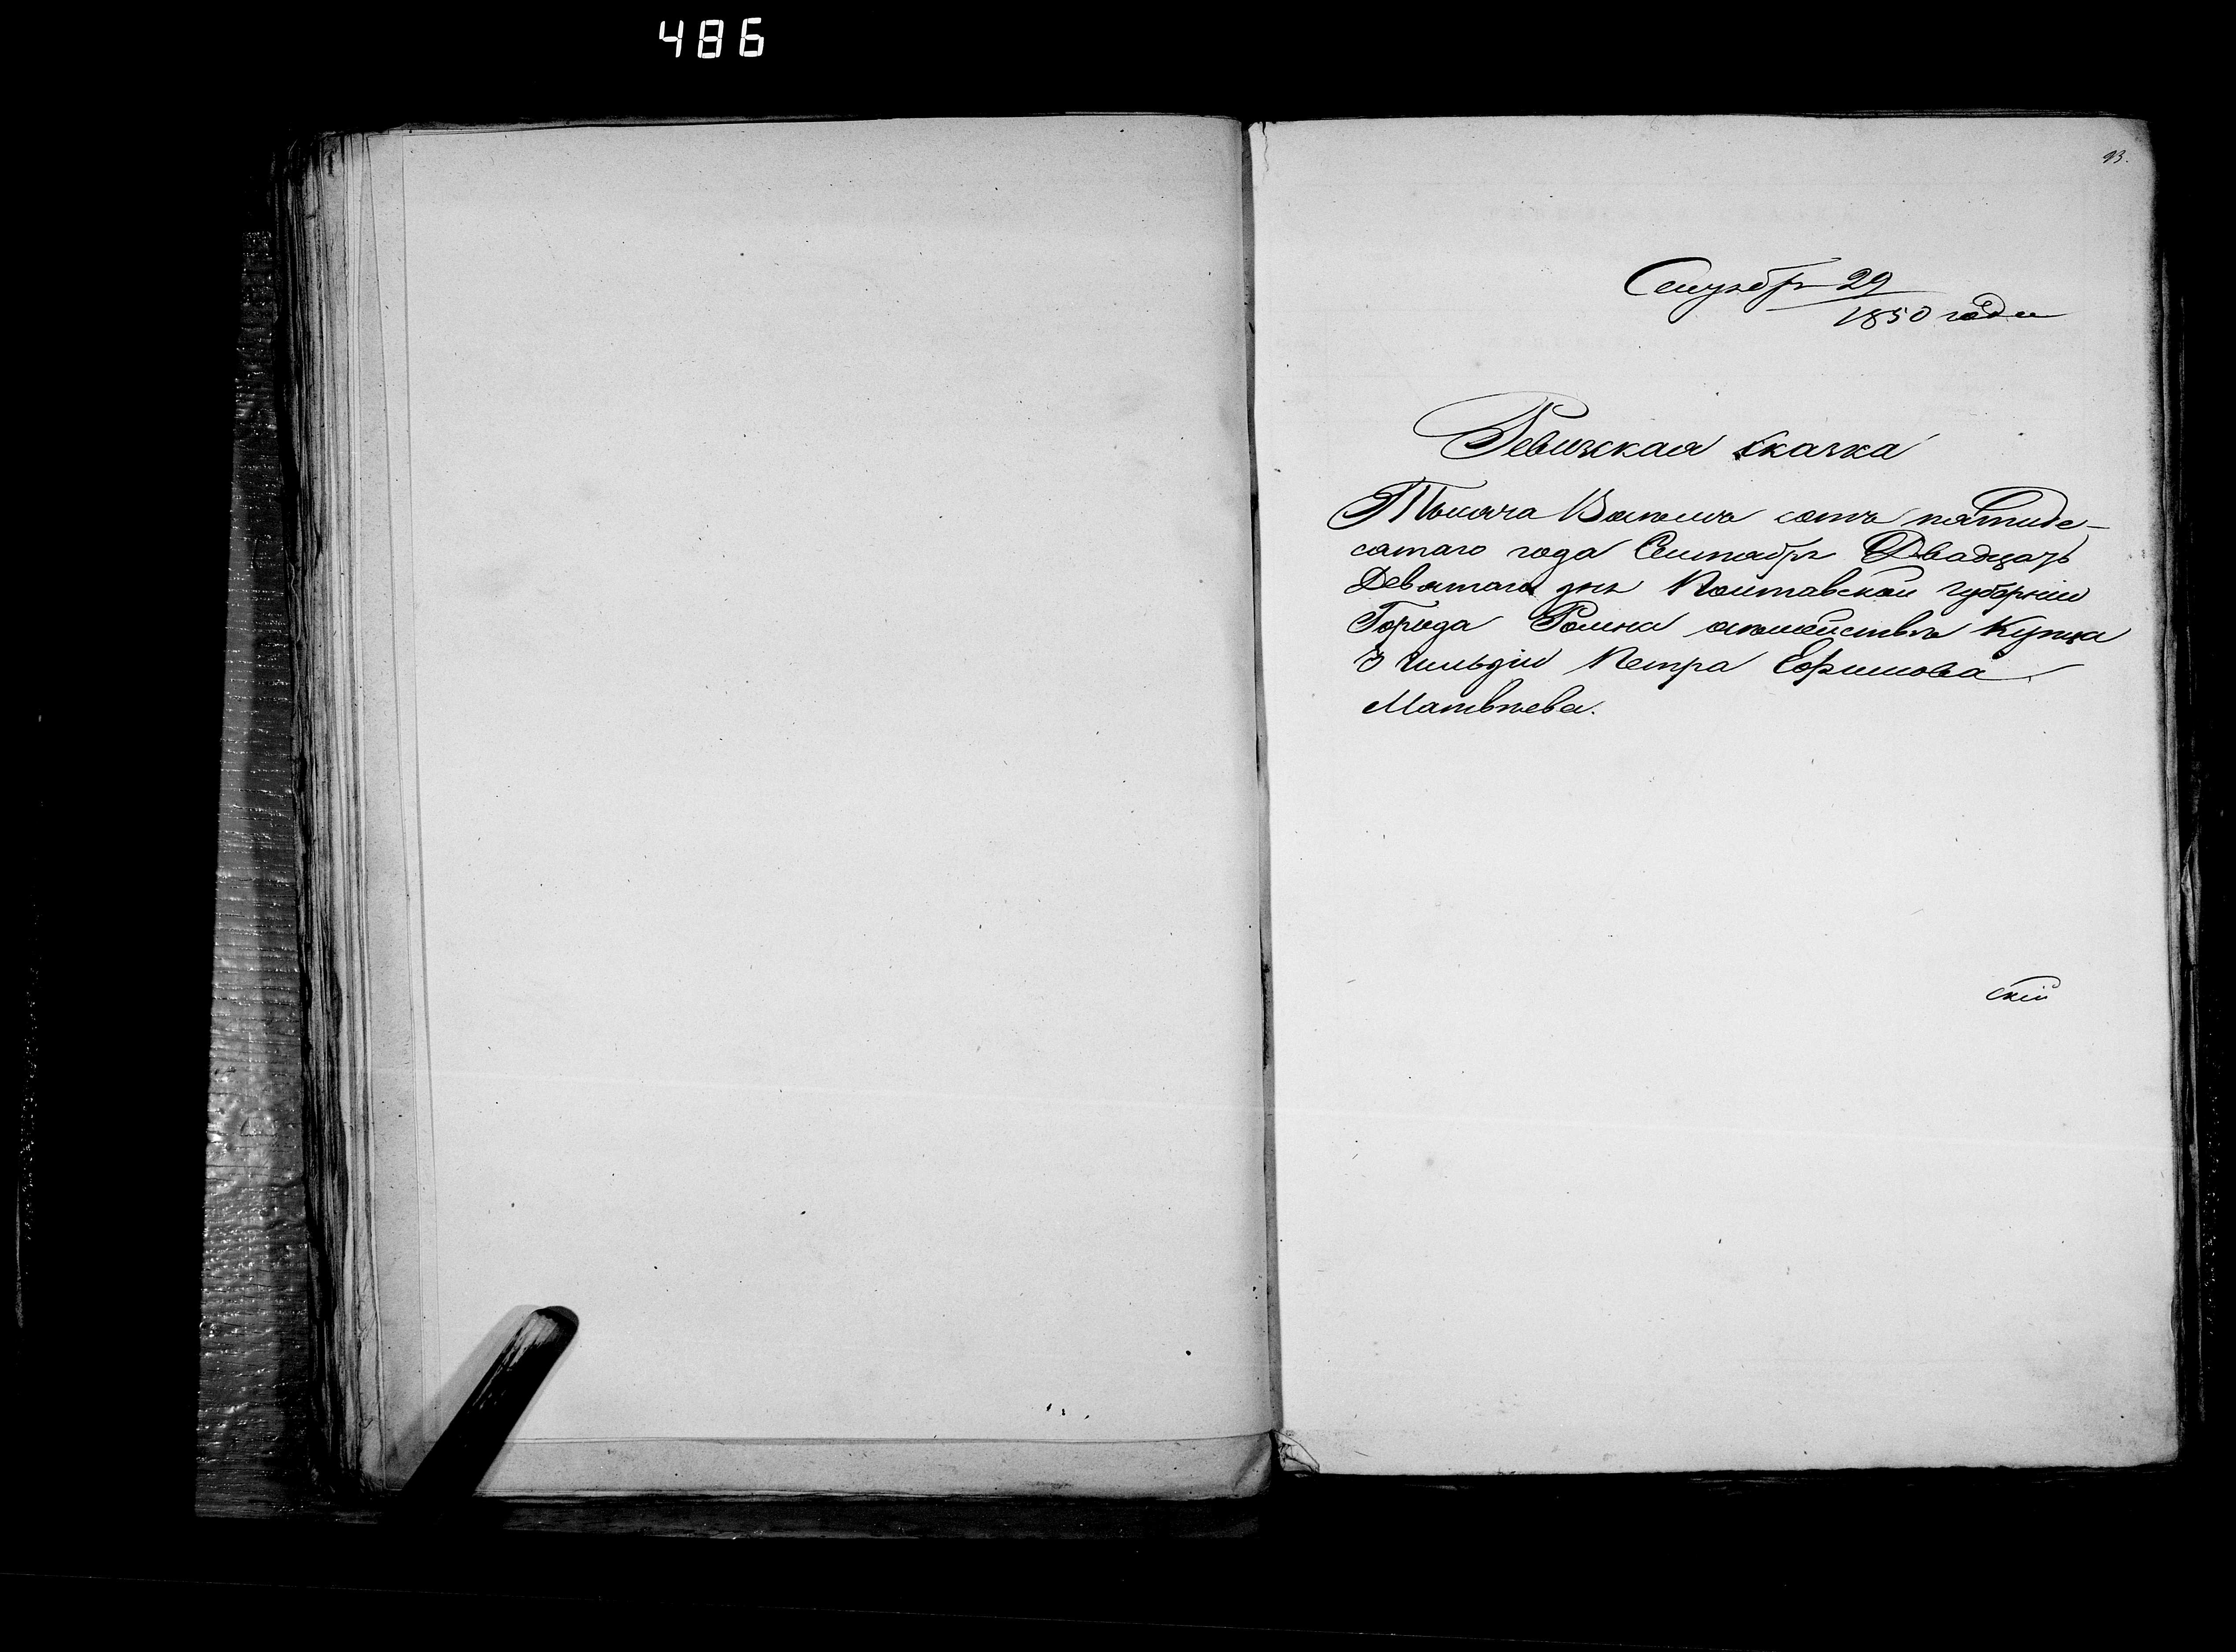 486
93.
Сентябр 29
1850 года
Ревизская сказка
Тысяча Восемь сотъ пятиде-
сятаго года Сентября Двадцать
Девятаго дня Полтавской губерніи
Города Ромна семействѣ Купца
3 гильдіи Петра Ефимова
Матвѣева.
скій